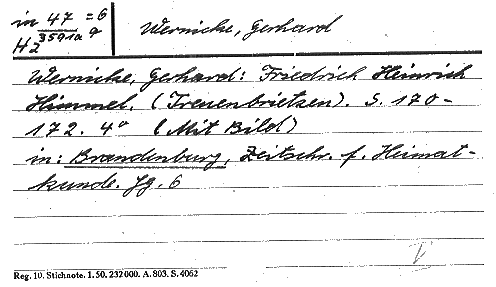 in 47 = 6
H2 3591a 9
Wernicke, Gerhard
Wernicke, Gerhard: Friedrich Heinrich
Himmel. (Treuenbrietzen). S. 170-
172. 4° (Mit Bild)
in: Brandenburg, Zeitschr. f. Heimat-
kunde. Jg. 6
Reg. 10. Stichnote. 1. 50. 232 000. A. 803. S. 4062